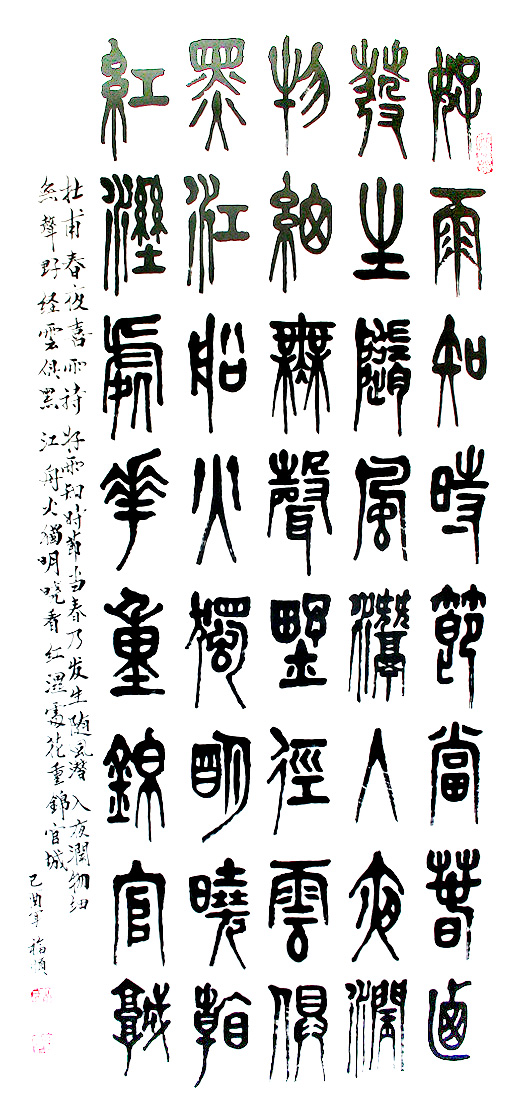 好雨知時節當春迺
發生隨風潛入夜潤
物細無聲野徑雲俱
黑江船火獨明曉看
紅溼處花重錦官城
杜甫春夜喜雨诗 好雨知时节当春乃发生随风潜入夜潤物细
無聲野经雲俱黑 江舟火獨明曉看红濕處花重錦官城